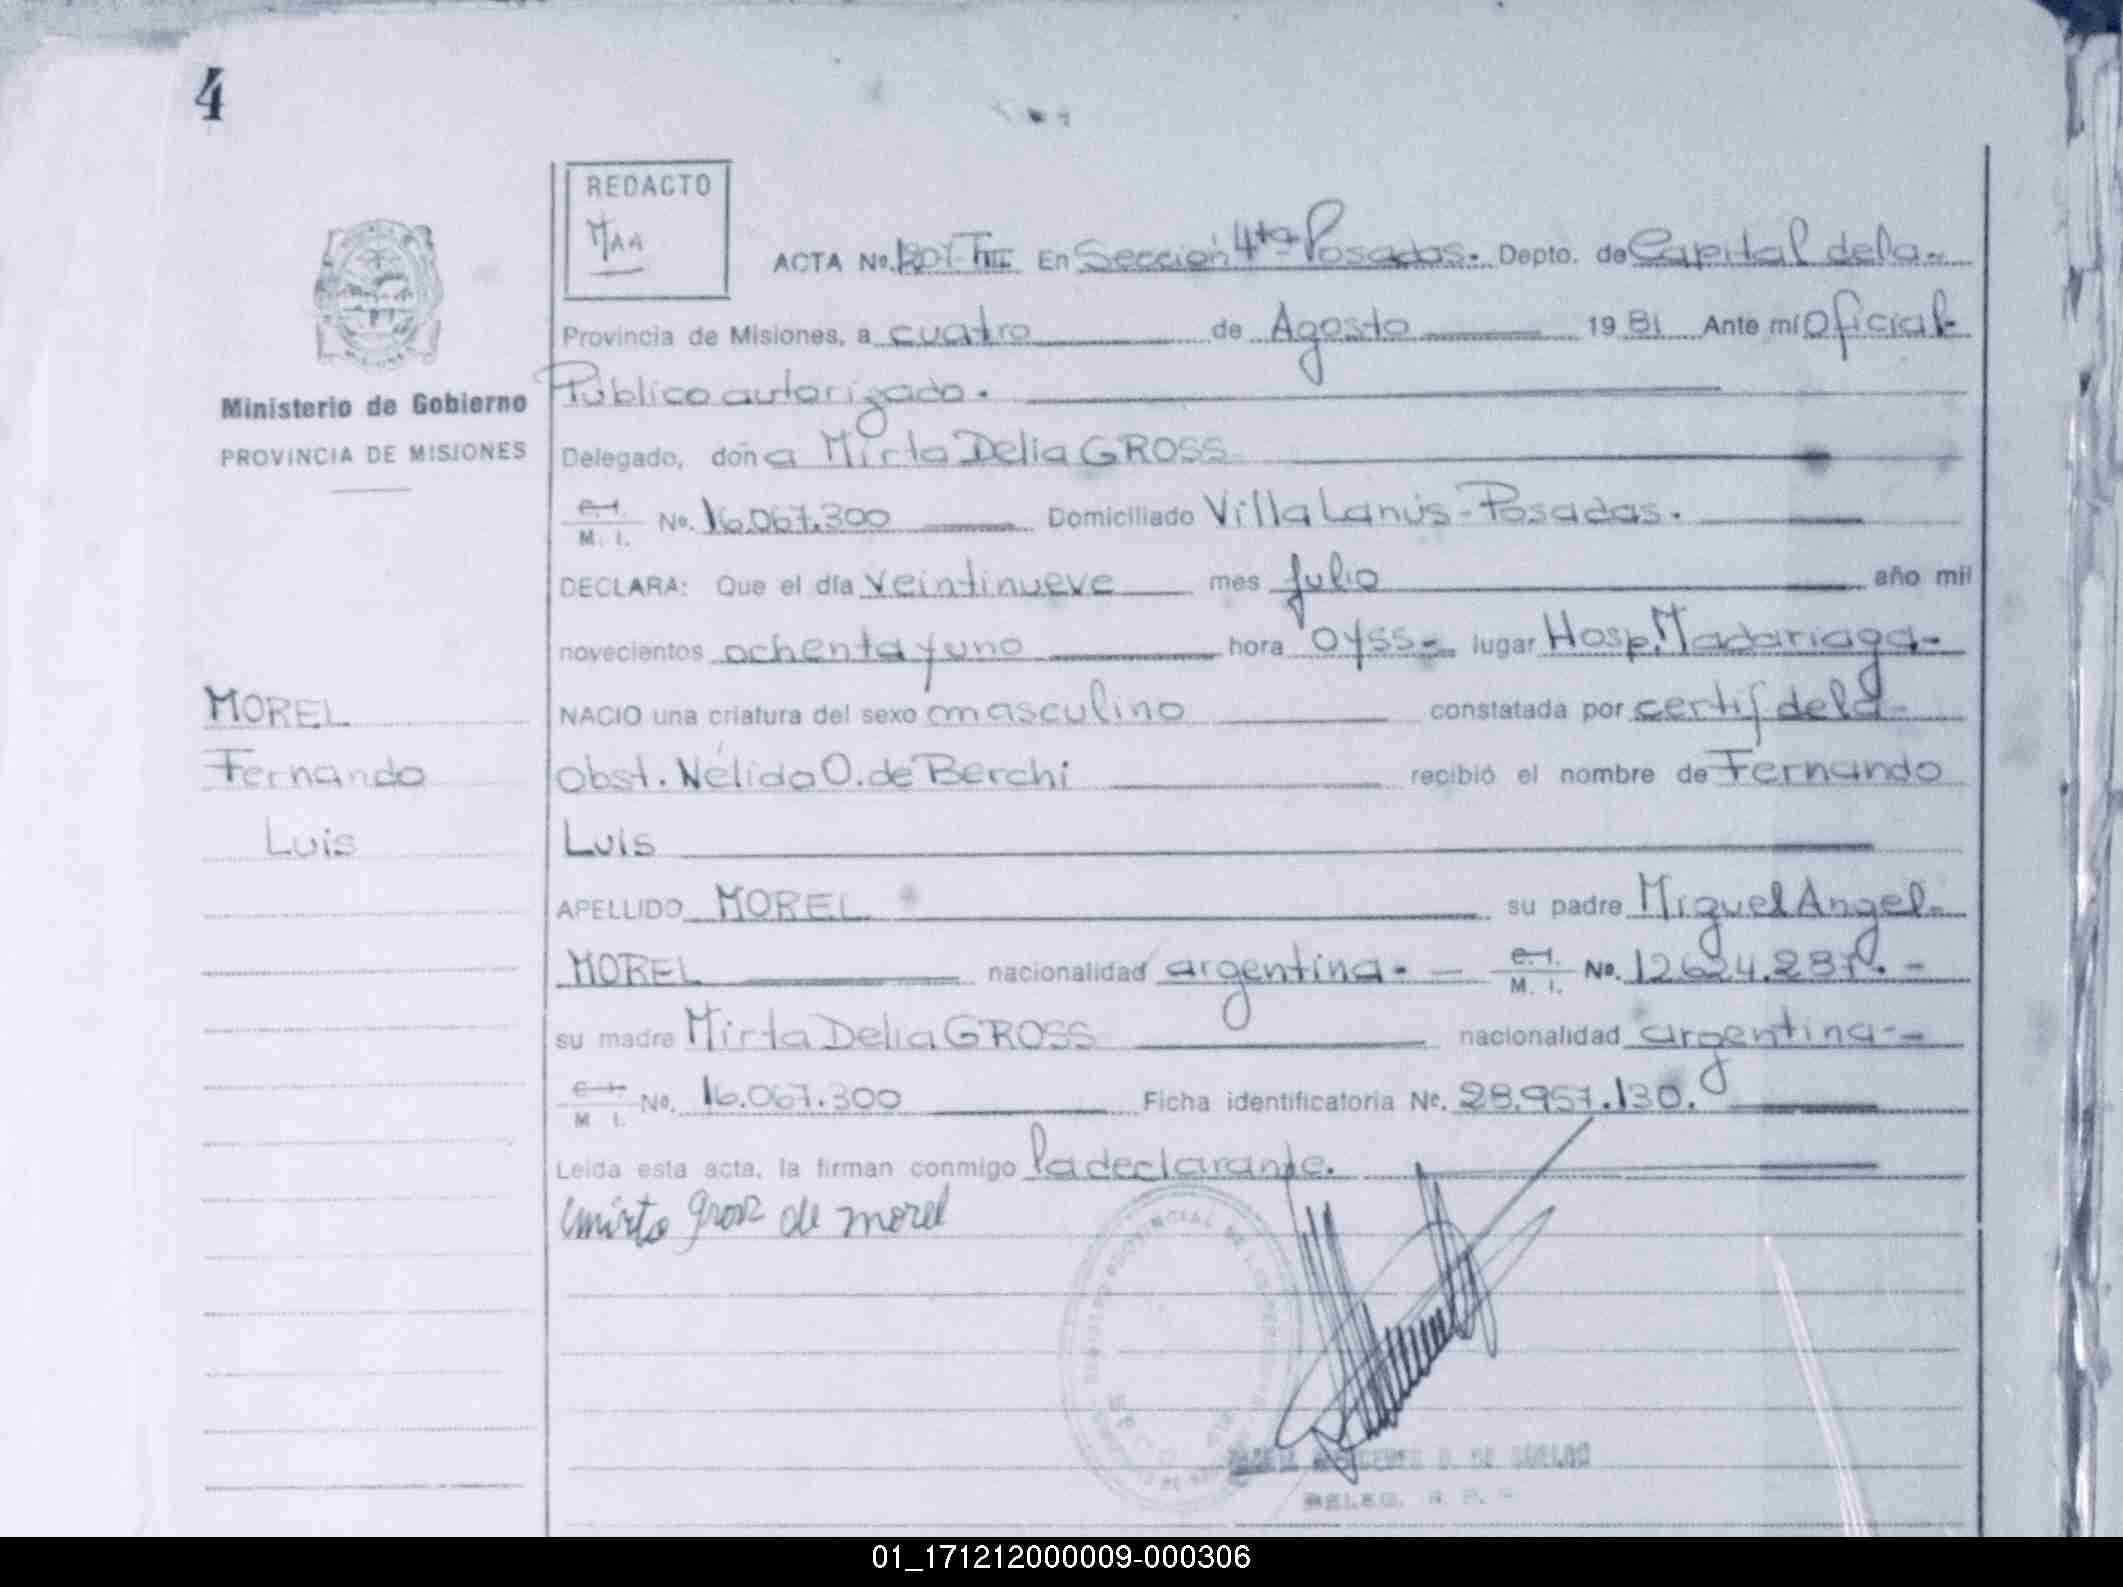 4
REDACTO
MAA
ACTA No. 1201-TIII En Sección 4ta Posadas. Depto. de Capital de la.-
Provincia de Misiones, a cuatro de Agosto 1981 Ante mí Oficial
Público autorizado.
Ministerio de Gobierno
PROVINCIA DE MISIONES
Delegado, doña Mirta Delia GROSS
M. I. No. 16.067.300 Domiciliado Villa Lanús-Posadas.
DECLARA: Que el día veintinueve mes Julio año mil
novecientos ochenta y uno hora 0y55- lugar Hosp. Madariaga-
NACIO una criatura del sexo masculino constatada por certif de la-
Obst. Nélida O. de Berchi recibió el nombre de Fernando
Luis
MOREL
Fernando
Luis
APELLIDO MOREL su padre Miguel Angel-
MOREL nacionalidad argentina.- M. I. No. 12.624.287.-
su madre Mirta Delia GROSS nacionalidad argentina--
M I. No. 16.067.300 Ficha identificatoria No. 28.957.130.
Leída esta acta, la firman conmigo la declarante.
mirta gross de morel
DELEG. R. P. P.
01_171212000009-000306